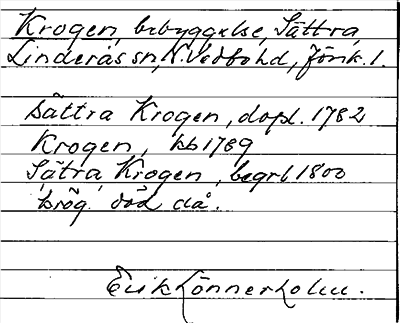 Krogen, bebyggelse, Sättra,
Linderås sn, N. Vedbo hd, Jönk. l.
Sättra Krogen, dopl. 1782
Krogen, hb 1789
Sätra Krogen, begrl 1800
krög död då.
Erik Lönnerholm.